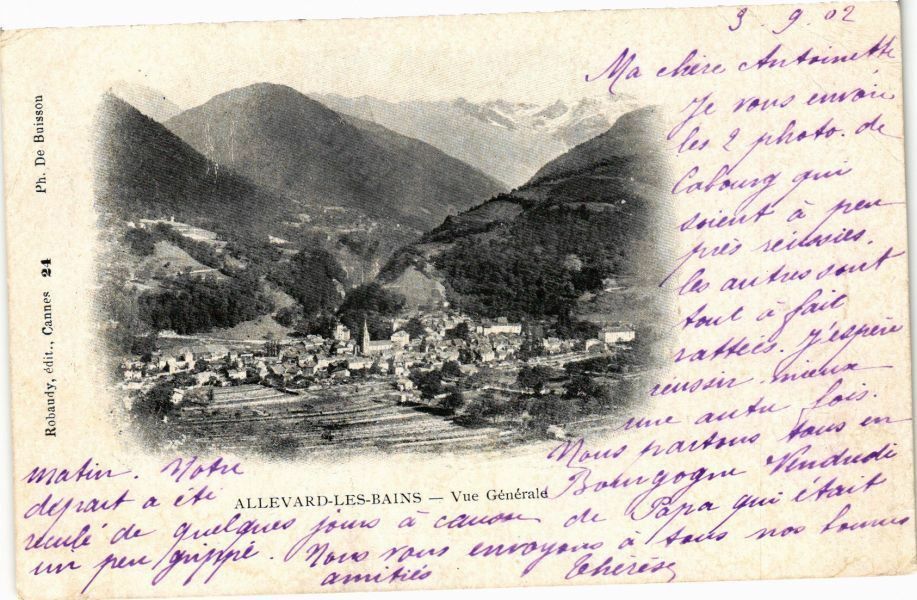 3. 9. 02
Ma chère Antoinette
Je vous envoie
les 2 photo. de
Cabourg qui
soient à peu
près réussies.
les autres sont
tout à fait
rattées. J'espère
réussir mieux
une autre fois.
Nous partons tous en
Bourgogne Vendredi
matin. Notre
départ a été
reculé de quelques jours à cause de Papa qui était
un peu grippé. Nous vous envoyons à tous nos bonnes
amitiés Thérèse
ALLEVARD-LES-BAINS — Vue Générale
Robaudy, édit., Cannes 24
Ph. De Buisson